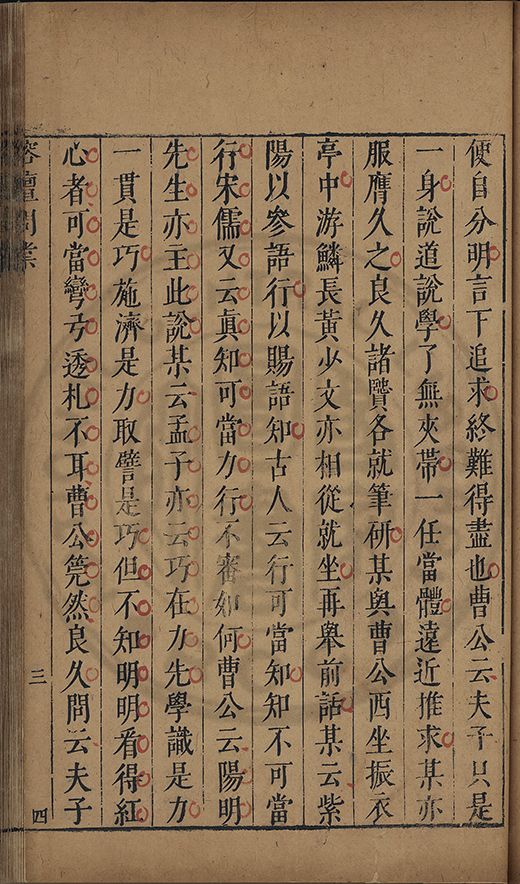 便自分明言下追求終難得盡也曹公云夫子只是
一身說道說學了無夾帶一任當體遠近推求某亦
服膺久之良久諸贒各就筆研某與曹公西坐振衣
亭中游鱗長黃少文亦相從就坐再舉前話某云紫
陽以參語行以賜語知古人云行可當知知不可當
行宋儒又云眞知可當力行不審如何曹公云陽明
先生亦主此說某云孟子亦云巧在力先學識是力
一貫是巧施濟是力取譬是巧但不知明明看得紅
心者可當彎弓透札不耳曹公筦然良久問云夫子
榕壇問業
三
四